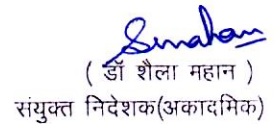 ( डॉ शैला महान )
संयुक्त निदेशक(अकादमिक)